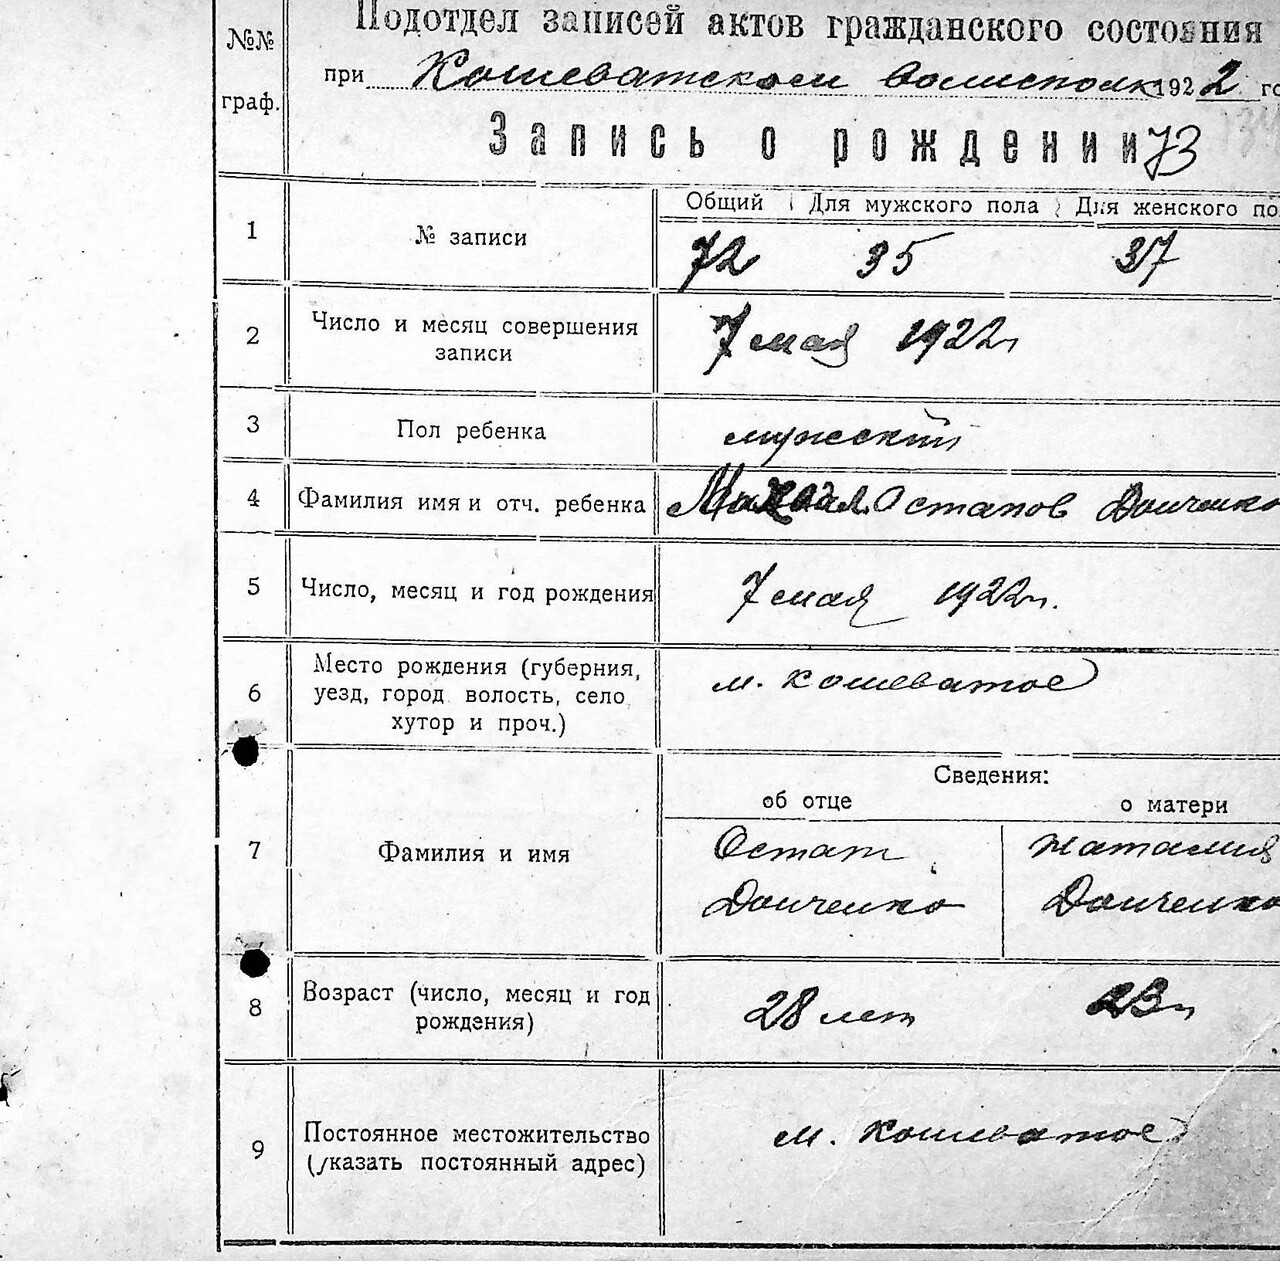 Подотдел записей актов гражданского состояния
№№
граф.
при Кошеватском волисполк 1922 го
Запись о рождении 73
Общий Для мужского пола Для женского по
1 № записи 72 35 37
2 Число и месяц совершения
записи
7 мая 1922г
3 Пол ребенка мужский
4 Фамилия имя и отч. ребенка Остапов Донченко
5 Число, месяц и год рождения 7 мая 1922г.
6 Место рождения (губерния,
уезд, город волость, село
хутор и проч.)
м. Кошеватое
Сведения:
об отце о матери
7 Фамилия и имя
Остап Наталия
Донченко Донченко
8 Возраст (число, месяц и год
рождения)
28 лет 23г
9 Постоянное местожительство
(указать постоянный адрес)
м. Кошеватое